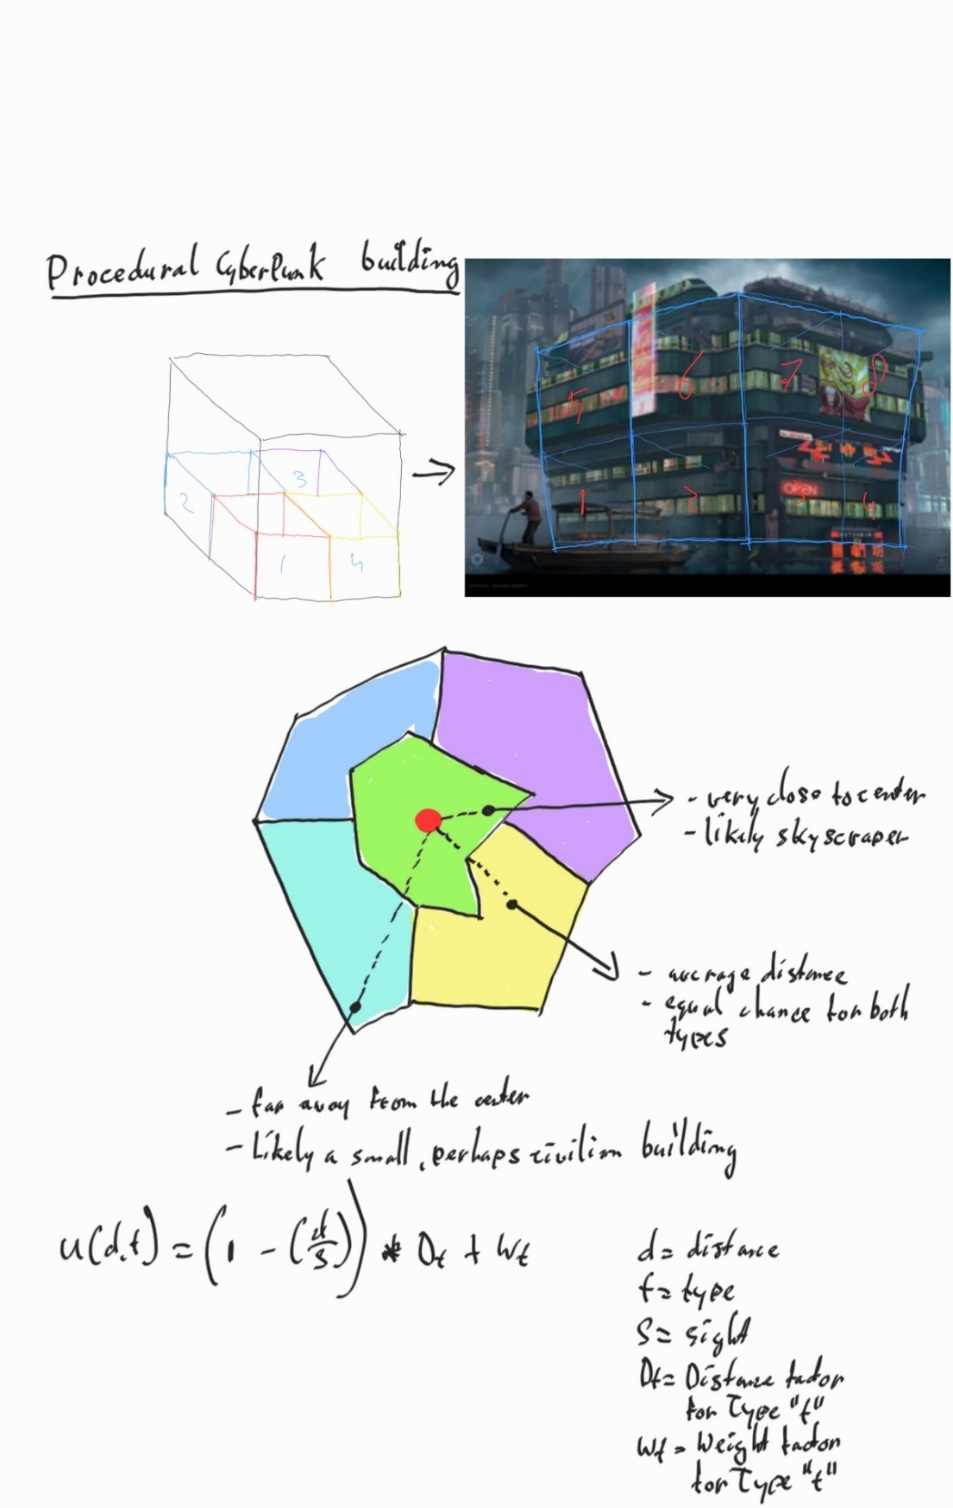 Procedural CyberPunk building
3
2
1
4
5
6
7
8
1
2
3
4
OPEN
- very close to center
- likely skyscraper
- average distance
- equal chance for both
types
- far away from the center
- Likely a small, perhaps civilian building
u(d,t) = (1 - (d/s)) * Dt + Wt
d = distance
t = type
S = sight
Dt = Distance factor
for Type "t"
Wt = Weight factor
for Type "t"